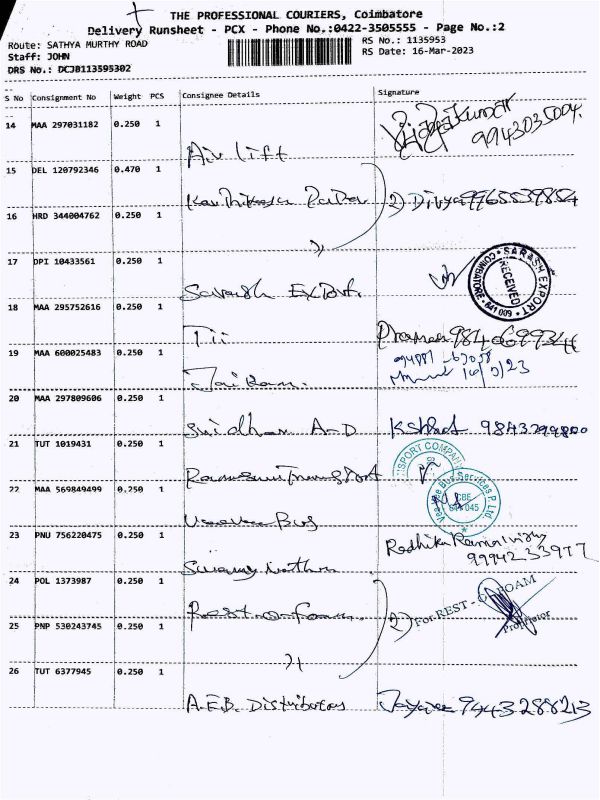 THE PROFESSIONAL COURIERS, Coimbatore
Delivery Runsheet - PCX - Phone No.:0422-3505555 - Page No.:2
Route: SATHYA MURTHY ROAD
RS No.: 1135953
Staff: JOHN
RS Date: 16-Mar-2023
DRS No.: DCJB113595302
S No Consignment No Weight PCS Consignee Details Signature
14 MAA 297031182 0.250 1
Vijayakumar
9943035004.
Air lift
15 DEL 120792346 0.470 1
2) Divya 9965539854
16 HRD 344004762 0.250 1
17 DPI 10433561 0.250 1
SARASH EXPORT
COIMBATORE - 641 009
RECEIVED
Sarash Export.
18 MAA 295752616 0.250 1
Tii
19 MAA 600025483 0.250 1
16/3/23
Jairam.
20 MAA 297809606 0.250 1
Sridhar A-D
21 TUT 1019431 0.250 1
22 MAA 569849499 0.250 1
Vee Vee Bus Services P. Ltd
CBE
641 045
Bus
23 PNU 756220475 0.250 1
Radhika
9994233977
24 POL 1373987 0.250 1
Rest-o-foam
2) For REST - O - FOAM
Proprietor
25 PNP 530243745 0.250 1
26 TUT 6377945 0.250 1
A.E.B. Distributors
9443288213